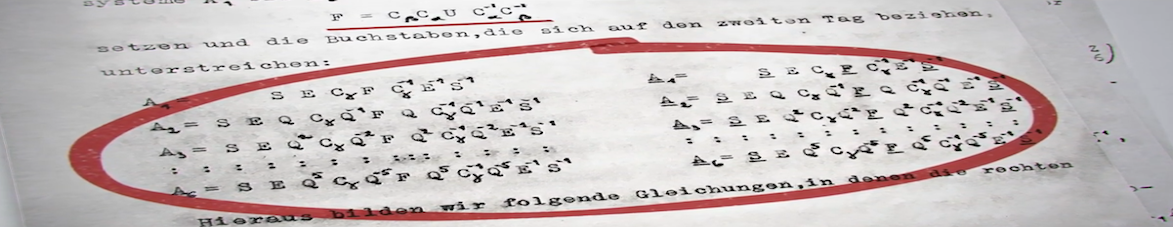 systeme A₁
F = C C U C⁻¹C⁻¹
setzen und die Buchstaben,die sich auf den zweiten Tag beziehen,
unterstreichen:
A₁ = S E CᵧF Cᵧ⁻¹E⁻¹S⁻¹ A₁= S E Cᵧ F Cᵧ⁻¹E⁻¹S⁻¹
A₂ = S E Q CᵧQ⁻¹F Q Cᵧ⁻¹Q⁻¹E⁻¹S⁻¹ A₂= S E Q CᵧQ⁻¹F Q Cᵧ⁻¹Q⁻¹E⁻¹S⁻¹
A₃ = S E Q²CᵧQ⁻²F Q²Cᵧ⁻¹Q⁻²E⁻¹S⁻¹ A₃= S E Q²CᵧQ⁻²F Q²Cᵧ⁻¹Q⁻²E⁻¹S⁻¹
: : : : : : : : : : : : : : : : : : : :
A₆ = S E Q⁵CᵧQ⁻⁵F Q⁵Cᵧ⁻¹Q⁻⁵E⁻¹S⁻¹ A₆= S E Q⁵CᵧQ⁻⁵F Q⁵Cᵧ⁻¹Q⁻⁵E⁻¹S⁻¹
Hieraus bilden wir folgende Gleichungen,in denen die rechten